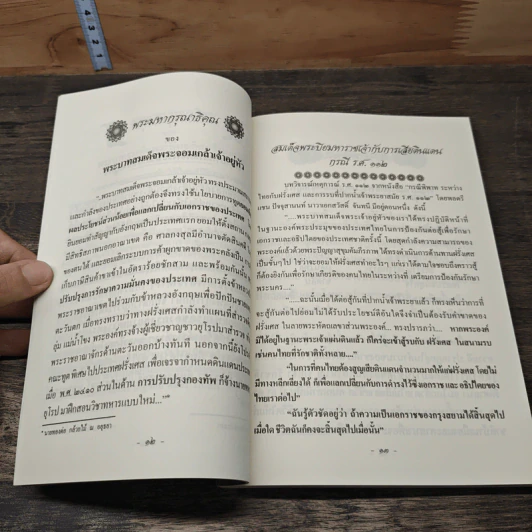 พระมหากรุณาธิคุณ
ของ
พระบาทสมเด็จพระจอมเกล้าเจ้าอยู่หัว
"...พระบาทสมเด็จพระจอมเกล้าเจ้าอยู่หัวทรงประมาณ
และกำลังของประเทศอย่างถูกต้องจึงทรงใช้นโยบาย
ผลประโยชน์ส่วนน้อยเพื่อแลกเปลี่ยนกับเอกราชของประเทศ
ยินยอมทำสัญญากับอังกฤษเป็นประเทศแรกยอมให้ตั้งสถาน
มีสิทธิสภาพนอกอาณาเขต คือ ศาลกงสุลมีอำนาจตัดสินคดี
ได้ และยอมเลิกระบบการค้าผูกขาดของพระคลังสินค้า
เก็บภาษีสินค้าขาเข้าในอัตราร้อยชักสาม และพร้อมกันนั้น
ปรับปรุงการรักษาความมั่นคงของประเทศ มีการตั้งข้าหลวง
พระราชอาณาเขตไปร่วมกับข้าหลวงอังกฤษเพื่อปักปันชายแดน
ตะวันตก เมื่อทรงทราบว่าทางฝรั่งเศสกำลังทำแผนที่สำรวจ
ลุ่ม แม่น้ำโขง พระองค์ทรงจ้างผู้เชี่ยวชาญชาวยุโรปมาสำรวจ
พระราชอาณาจักรด้านตะวันออกบ้างทันที นอกจากนี้ยังโปรด
คณะทูตพิเศษไปประเทศฝรั่งเศส เพื่อเจรจากำหนดดินแดน
เมื่อ พ.ศ. ๒๔๑๐ ส่วนในด้าน การปรับปรุงกองทัพ ก็จ้างนายทหาร
ยุโรป มาฝึกสอนวิชาทหารแบบใหม่..."
* นายทองต่อ กล้วยไม้ ณ อยุธยา
- ๑๒ -
สมเด็จพระปิยมหาราชเจ้ากับการเสียดินแดน
กรณี ร.ศ. ๑๑๒
บทวิจารณ์เหตุการณ์ ร.ศ. ๑๑๒ จากหนังสือ "กรณีพิพาท ระหว่าง
ไทยกับฝรั่งเศส และการรบที่ปากน้ำเจ้าพระยาสมัย ร.ศ. ๑๑๒" โดยพลตรี
แชน ปัจจุสานนท์ นาวาเอกสวัสดิ์ จันทนี มีอยู่ตอนหนึ่ง ดังนี้
"....พระบาทสมเด็จพระเจ้าอยู่หัวของเราได้ทรงปฏิบัติหน้าที่
ในฐานะองค์พระประมุขของประเทศไทยในการป้องกันต่อสู้เพื่อรักษา
เอกราชและอธิปไตยของประเทศชาติครั้งนี้ โดยสุดกำลังความสามารถของ
พระองค์แล้วด้วยพระปัญญาสุขุมคัมภีรภาพ ได้ทรงดำเนินการด้านทานฝรั่งเศส
เป็นขั้นๆไป ใช่ว่าจะยอมให้ฝรั่งเศสทำอะไรๆ แก่เราได้ตามใจชอบถึงคราวสู้
ก็ต้องยิงกันเพื่อรักษาเกียรติของคนไทยในระหว่างที่ เตรียมการป้องกันรักษา
พระนคร...."
"....ฉะนั้นเมื่อได้ต่อสู้กันที่ปากน้ำเจ้าพระยาแล้ว ก็ทรงเห็นว่าการที่
จะสู้กันต่อไปย่อมไม่ได้รับประโยชน์ดีอันใดจึงจำเป็นต้องรับคำขาดของ
ฝรั่งเศส ในลายพระหัตถเลขาส่วนพระองค์... ทรงปรารภว่า... หากพระองค์
มิได้อยู่ในฐานะพระเจ้าแผ่นดินแล้ว ก็ใคร่จะเข้าสู้รบกับ ฝรั่งเศส ในสนามรบ
เช่นคนไทยที่รักชาติทั้งหลาย...."
"ในการที่คนไทยต้องสูญเสียดินแดนจำนวนมากให้แก่ฝรั่งเศส โดยไม่
มีทางหลีกเลี่ยงได้ ก็เพื่อแลกเปลี่ยนกับการดำรงไว้ซึ่งเอกราช และ อธิปไตยของ
ไทยเราต่อไป"
"ฉันรู้ตัวชัดอยู่ว่า ถ้าความเป็นเอกราชของกรุงสยามได้สิ้นสุดไป
เมื่อใด ชีวิตฉันก็คงจะสิ้นสุดไปเมื่อนั้น"
- ๑๓ -
4 3 2 1